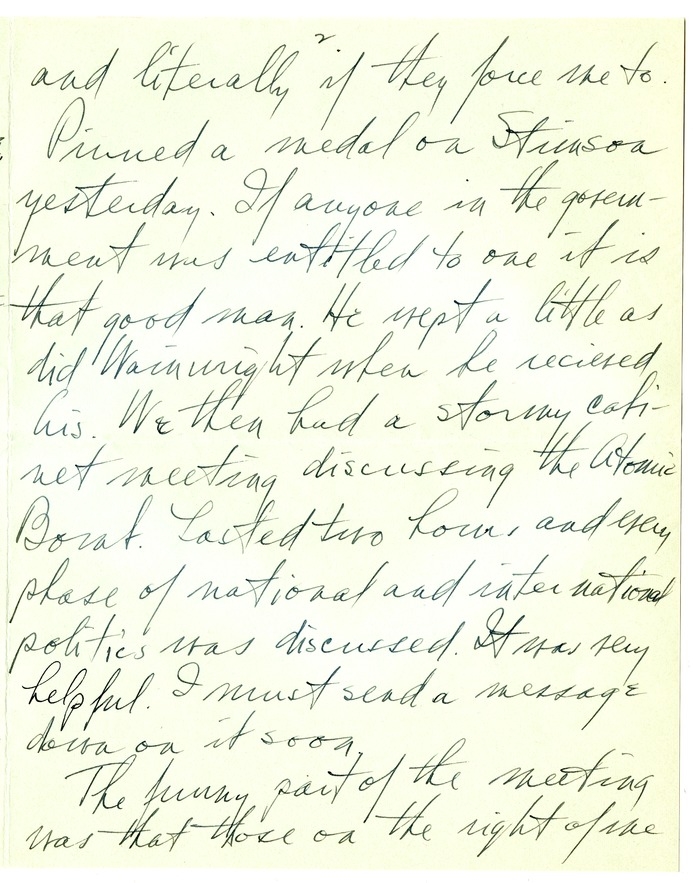 2
and literally if they force me to.
Pinned a medal on Stimson
yesterday. If anyone in the govern-
ment was entitled to one it is
that good man. He wept a little as
did Wainwright when he recieved
his. We then had a stormy cabi-
net meeting discussing the Atomic
Bomb. Lasted two hours and every
phase of national and international
politics was discussed. It was very
helpful. I must send a message
down on it soon.
The funny part of the meeting
was that those on the right of me